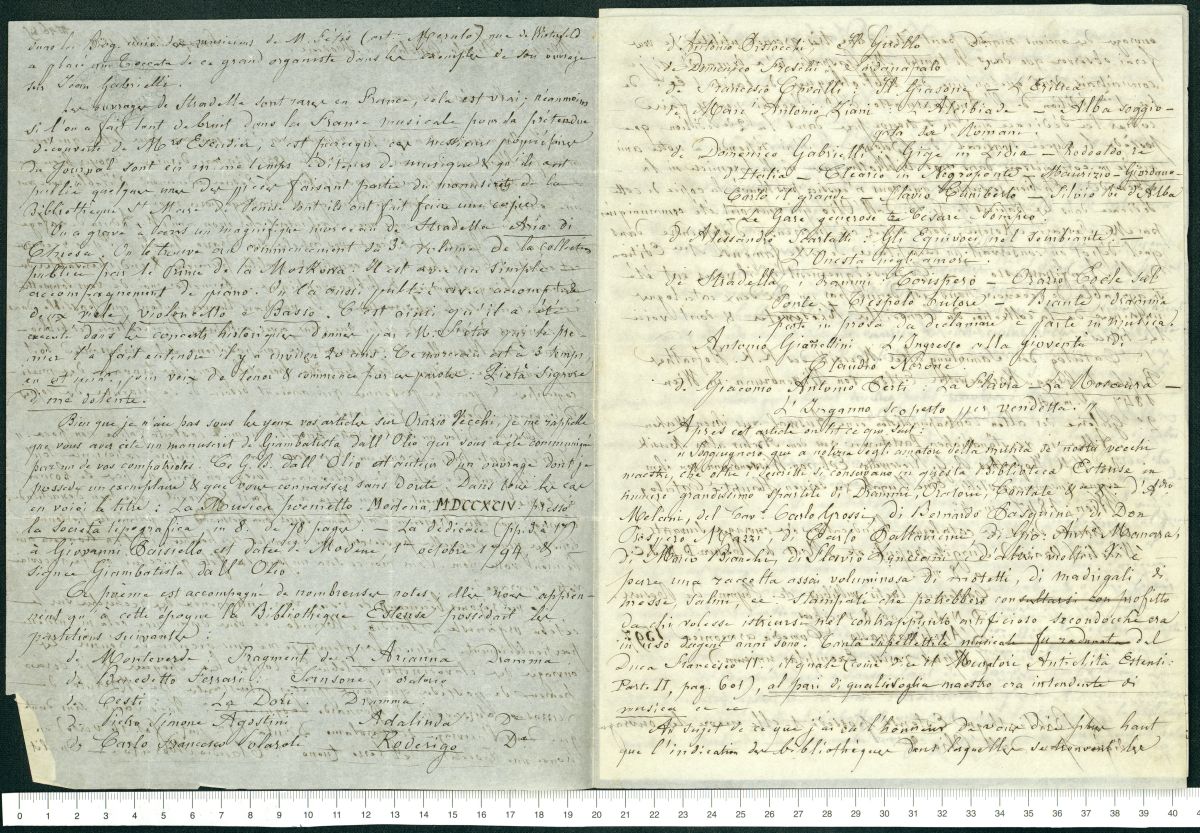 dans la Biog. univ. des musiciens de M. Fétis (art: Merulo) que de Winterfeld
a placé une Toccata de ce grand organiste dans les exemples de son ouvrage
sur Jean Gabrielli.
Les ouvrages de Stradella sont rares en France, cela est vrai; néanmoins
si l'on a fait tant de bruit dans la France musicale pour la prétendue
découverte de Mrs Escudier, c'est parceque ces messieurs propriétaires
du Journal sont en même temps éditeurs de musique & qu'ils ont
publié quelques unes des pièces faisant partie du manuscrit de la
Bibliothèque St Marc de Venise dont ils ont fait faire une copie.
On a gravé à Paris un magnifique morceau de Stradella Aria di
Chiesa. On le trouve au commencement du 3e volume de la collection
publiée par le Prince de la Moskowa. Il est avec un simple
accompagnement de piano. On l'a aussi publié avec accompt de
deux viole, violoncello e Basso. C'est ainsi qu'il a été
exécuté dans les concerts historiques donnés par M. Fétis qui le pre-
mier l'a fait entendre il y a environ 20 ans. Ce morceau est à 3 temps,
en ut mineur, pour voix de tenor & commence par ces paroles: Pietà Signore
di me dolente.
Bien que je n'aie pas sous les yeux vos articles sur Orazio Vecchi, je me rappelle
que vous avez cité un manuscrit de Giambatista dall'Olio qui vous a été communiqué
par un de vos compatriotes. Ce G.B. dall'Olio est auteur d'un ouvrage dont je
possède un exemplaire & que vous connaissez sans doute. Dans tous les cas
en voici le titre: La Musica poemetto Modena, MDCCXCIV presso
la società tipografica in 8. de 78 pages — La dédicace (pp. 3 à 17)
à Giovanni Paisiello est datée de Modène 1er octobre 1794 &
signée Giambatista dall'Olio.
Ce poème est accompagné de nombreuses notes. Elles nous appren-
nent qu'à cette époque la Bibliothèque Estense possédait les
partitions suivantes:
de Monteverde Fragment de L'Arianna Dramma
de Benedetto Ferrari: Sansone, oratorio
Cesti La Dori Dramma
di Pietro Simone Agostini Adalinda Do
de Carlo Francesco Polaroli Roderigo Do
Antonio Gianettini L'Ingresso alla Gioventù di
Claudio Nerone
de Domenico Freschi Sardanapalo
de Francesco Cavalli: Il Giasone — L'Eritrea
de Marc Antonio Ziani Alcibiade — Alba soggio-
gata da' Romani
de Domenico Gabrielli Gige in Lidia — Rodoaldo re
d'Italia — Clearco in Negroponte — Maurizio — Giordano
Carlo il grande — Flavio Cuniberto — Silvio re d'Alba
Le Gare generose tra Cesare e Pompeo
d'Alessandro Scarlatti: Gli Equivoci nel sembiante —
L'Onestà negli amori.
de Stradella Drammi Corispero — Orazio Cocle sul
Ponte — Trespolo tutore — Biante Dramma
parte in prosa da declamare e parte in musica.
de Giacomo Antonio Perti La Flavia — La Rosaura —
L'Inganno scoperto per vendetta.
Après cet article on lit ce qui suit:
"Soggiugnerò qui a notizia degli amatori della musica de' nostri vecchi
maestri, che altri simili si conservano in questa Biblioteca Estense in
numero grandissimo spartiti di Drammi, Oratorii, Cantate & d'Ales.
Melani, del Cav. Carlo Grossi, di Bernardo Pasquini, di Don
di Carlo Pallavicini, di Gio: Ant.
di Mario Bianchi, di e d'altri molti. V'è
pure una raccolta assai voluminosa di mottetti, di madrigali, di
messe, salmi, ec. stampati che potrebbero consultarsi con profitto
da chi volesse istruirsi nel contrappunto artifizioso secondochè era
in uso dugent'anni sono. Tanta suppellettile musicale fu radunata del
Duca Francesco II, il quale (come vedi Muratori Antichità Estensi
Parte II, pag. 601), al pari di qualsivoglia maestro era intendente di
musica ec ec
Au sujet de ce que j'ai eu l'honneur de vous dire plus haut
que l'indication des bibliothèques dans lesquelles se trouvent les
0 1 2 3 4 5 6 7 8 9 10 11 12 13 14 15 16 17 18 19 20 21 22 23 24 25 26 27 28 29 30 31 32 33 34 35 36 37 38 39 40